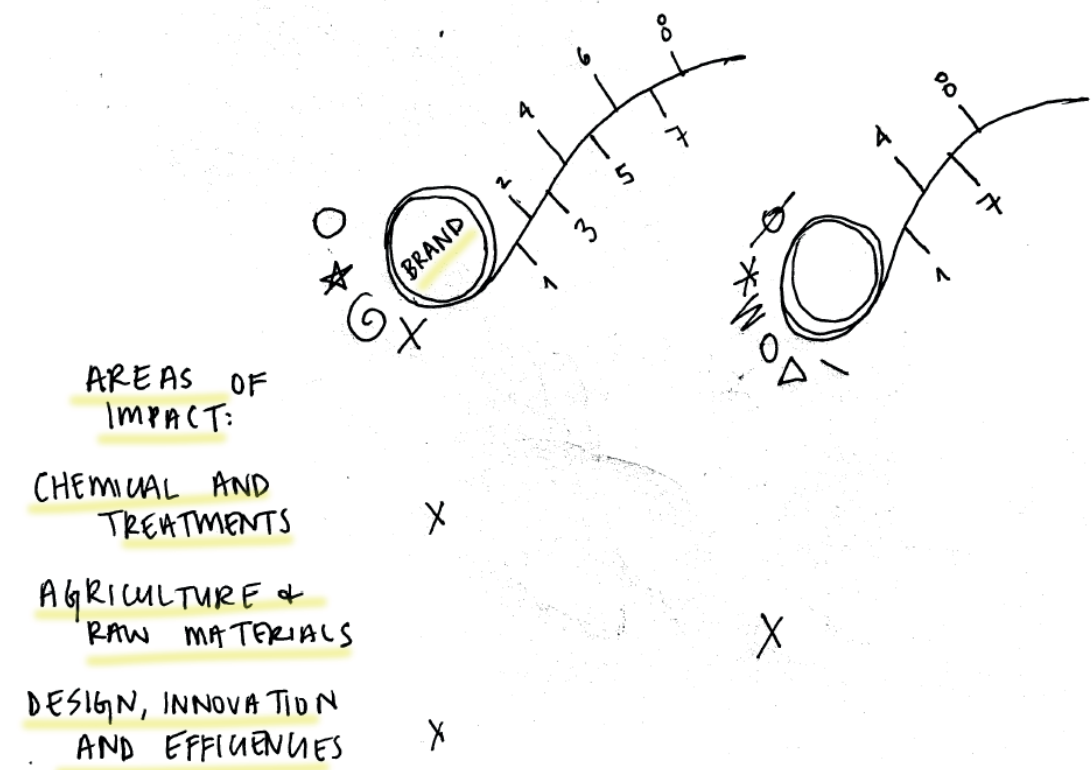 8
6
4
2
7
5
3
1
BRAND
8
4
7
1
AREAS OF
IMPACT:
CHEMICAL AND
TREATMENTS
X
AGRICULTURE &
RAW MATERIALS
X
DESIGN, INNOVATION
AND EFFICIENCIES
X